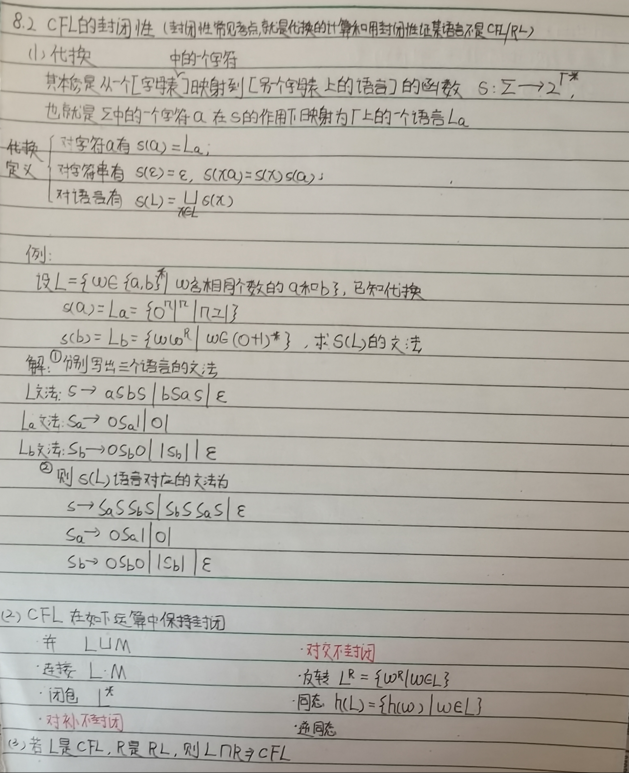 8.2 CFL的封闭性 (封闭性常见考点,就是代换的计算和用封闭性证某语言不是CFL/RL)
(1) 代换
中的个字符
其本质是从一个[字母表]映射到[另个字母表上的语言]的函数 S: Σ→2^Γ*,
也就是Σ中的一个字符a 在S的作用下映射为Γ上的一个语言La
代换定义
对字符a有 s(a)=La;
对字符串有 s(ε)=ε, s(xa)=s(x)s(a);
对语言有 s(L)=⋃x∈L s(x)
例:
设L={w∈{a,b}*| w含相同个数的a和b}, 已知代换
s(a)=La={0ⁿ1ⁿ|n≥1}
s(b)=Lb={wwᴿ| w∈(0+1)*}, 求S(L)的文法
解:①分别写出三个语言的文法
L文法: S→ aSbS|bSaS|ε
La文法: Sa→ 0Sa1|01
Lb文法: Sb→0Sb0|1Sb1|ε
②则 s(L)语言对应的文法为
S→SaSSbS|SbSSaS|ε
Sa→ 0Sa1|01
Sb→ 0Sb0|1Sb1|ε
(2) CFL 在如下运算中保持封闭
·并 L∪M
·对交不封闭
·连接 L·M
·反转 Lᴿ={wᴿ|w∈L}
·闭包 L*
·同态 h(L)={h(w)|w∈L}
·对补不封闭
·逆同态
(3) 若L是CFL, R是RL, 则L∩R∈CFL